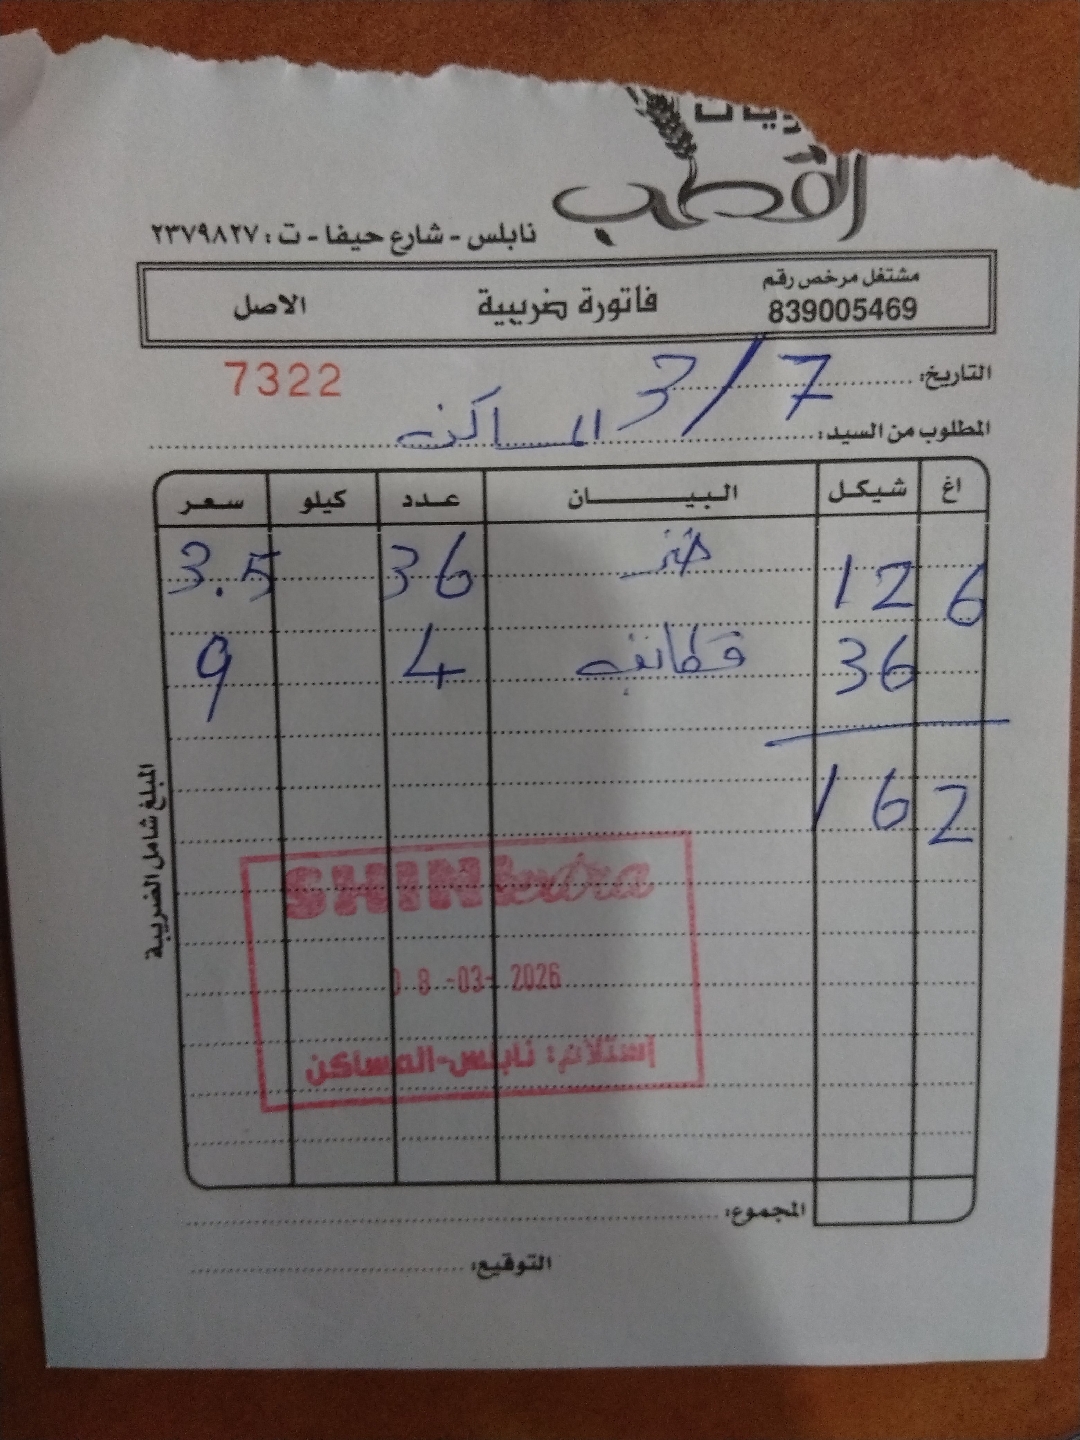 القطب
نابلس - شارع حيفا - ت : ٢٣٧٩٨٢٧
مشتغل مرخص رقم
839005469
فاتورة ضريبية
الاصل
التاريخ: 3/7
7322
المطلوب من السيد: المساكن
اغ شيكل البيـــــان عدد كيلو سعر
6 12 خبز 36 3.5
36 قطائف 4 9
162
المبلغ شامل الضريبة
SHINI extra
08-03-2026
إستلام: نابلس-المساكن
المجموع:
التوقيع: